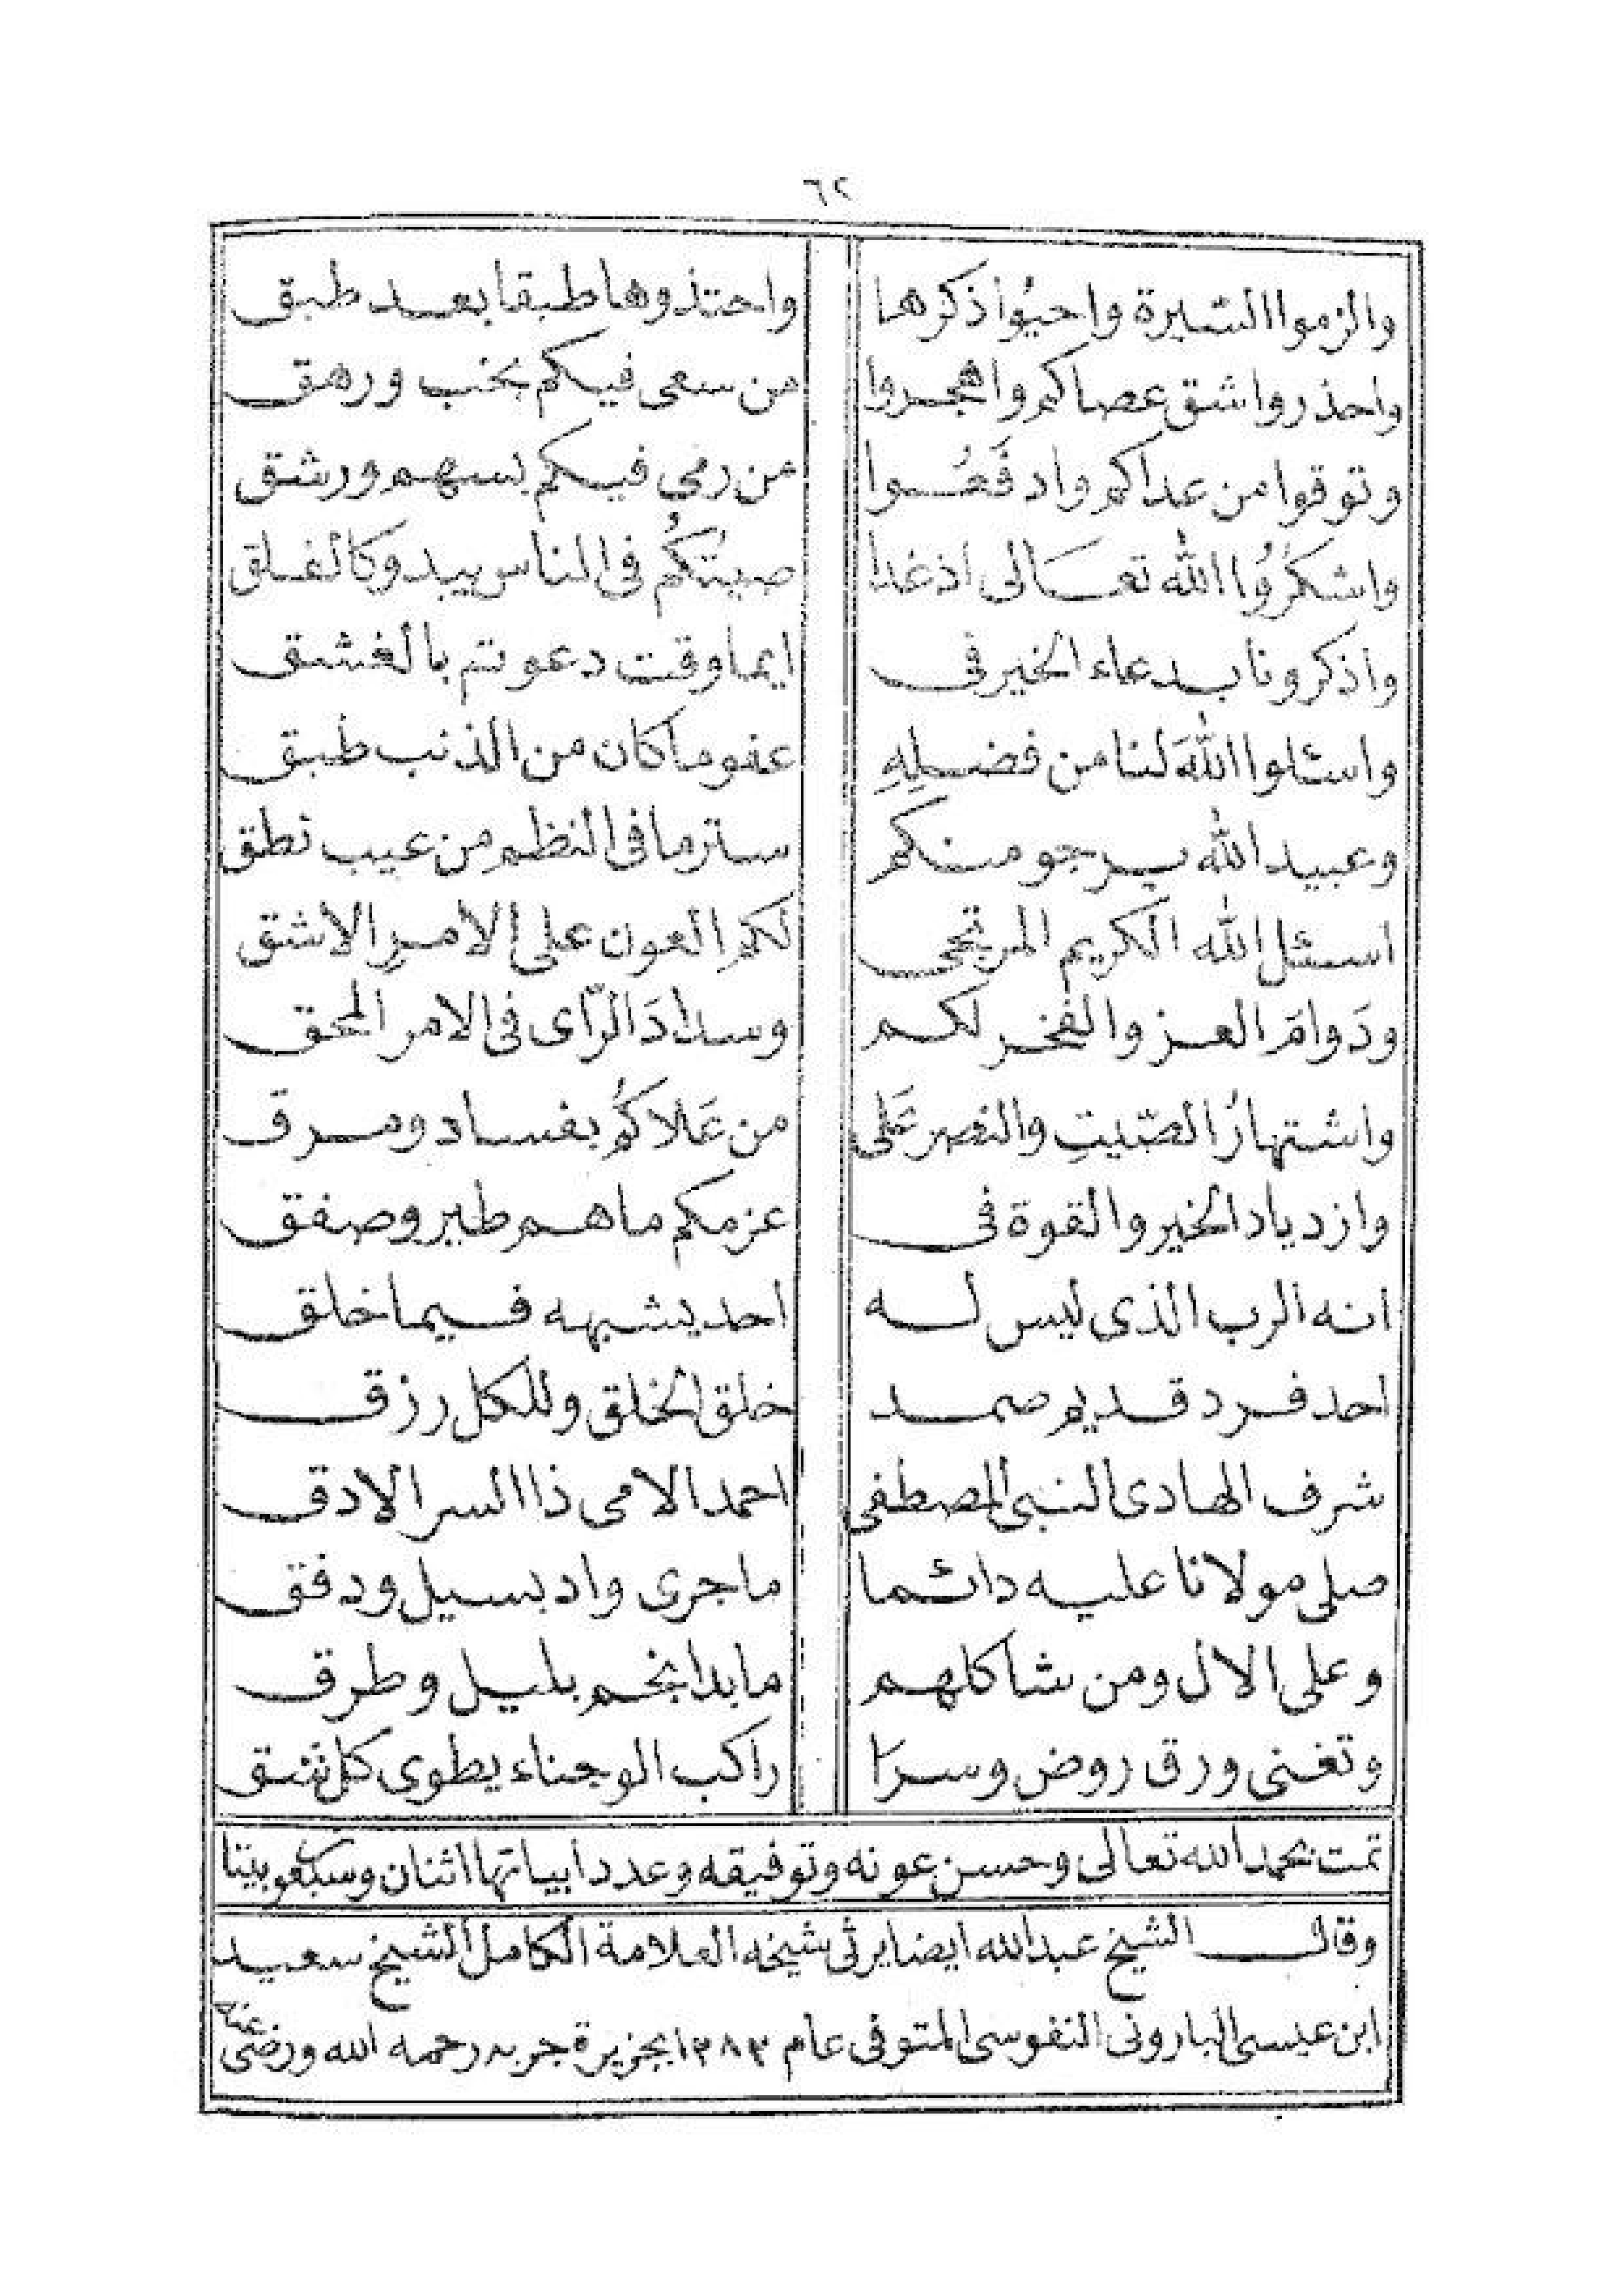 ٦٢
والزموا السيرة واحيُوا ذكرها واحتذوها طبقا بعد طبق
واحذروا شق عصاكم واهجروا من سعى فيكم بخب ورهق
وتوقوا من عداكم وادفَعُوا من رمى فيكم بسهم ورشق
واشكرُوا الله تعالى اذ غدا صيتكُم فى الناس يبدو كالفلق
واذكرونا بدعاء الخير فى ايما وقت دعوتم بالغشق
واسئلوا اللهَ لنا من فضلِهِ عفو ما كان من الذنب طبق
وعبيد الله يرجو منكم ستر ما فى النظم من عيب نطق
اسئل الله الكريم المرتجى لكمِ العون على الامرِ الاشق
ودَوامَ العز والفخر لكم وسدادَ الرّاى فى الامر المحق
واشتهارُ الصّيتِ والنصر عَلى من عَلاكُم بفساد ومرق
وازدياد الخير والقوة فى عزمكم ما هم طير وصفق
انه الرب الذى ليس له احد يشبهه فيما خلق
احد فرد قديم صمد خلق الخلق وللكل رزق
شرف الهادى النبى المصطفى احمد الامى ذا السر الادق
صلى مولانا عليه دائما ما جرى واد بسيل ودفق
وعلى الال ومن شاكلهم ما بدا نجم بليل وطرق
وتغنى ورق روض وسرا راكب الوجناء يطوى كل شق
تمت بحمد الله تعالى وحسن عونه وتوفيقه وعدد ابياتها اثنان وسبعو بيتا
وقال الشيخ عبد الله ايضا يرثى شيخه العلامة الكامل الشيخ سعيد
ابن عيسى البارونى النفوسى المتوفى عام ١٢٨٢ بجزيرة جربه رحمه الله ورضى عنه